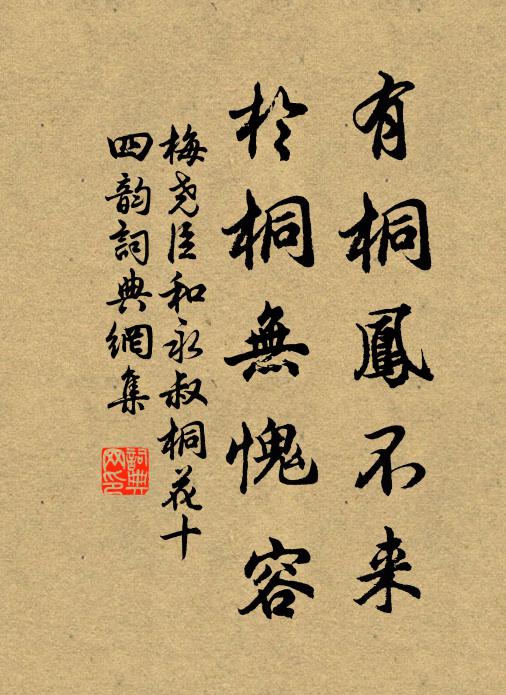 有桐鳳不来
於桐無愧容
梅尧臣和永叔桐花十
四韵詞典網集
詞典网印